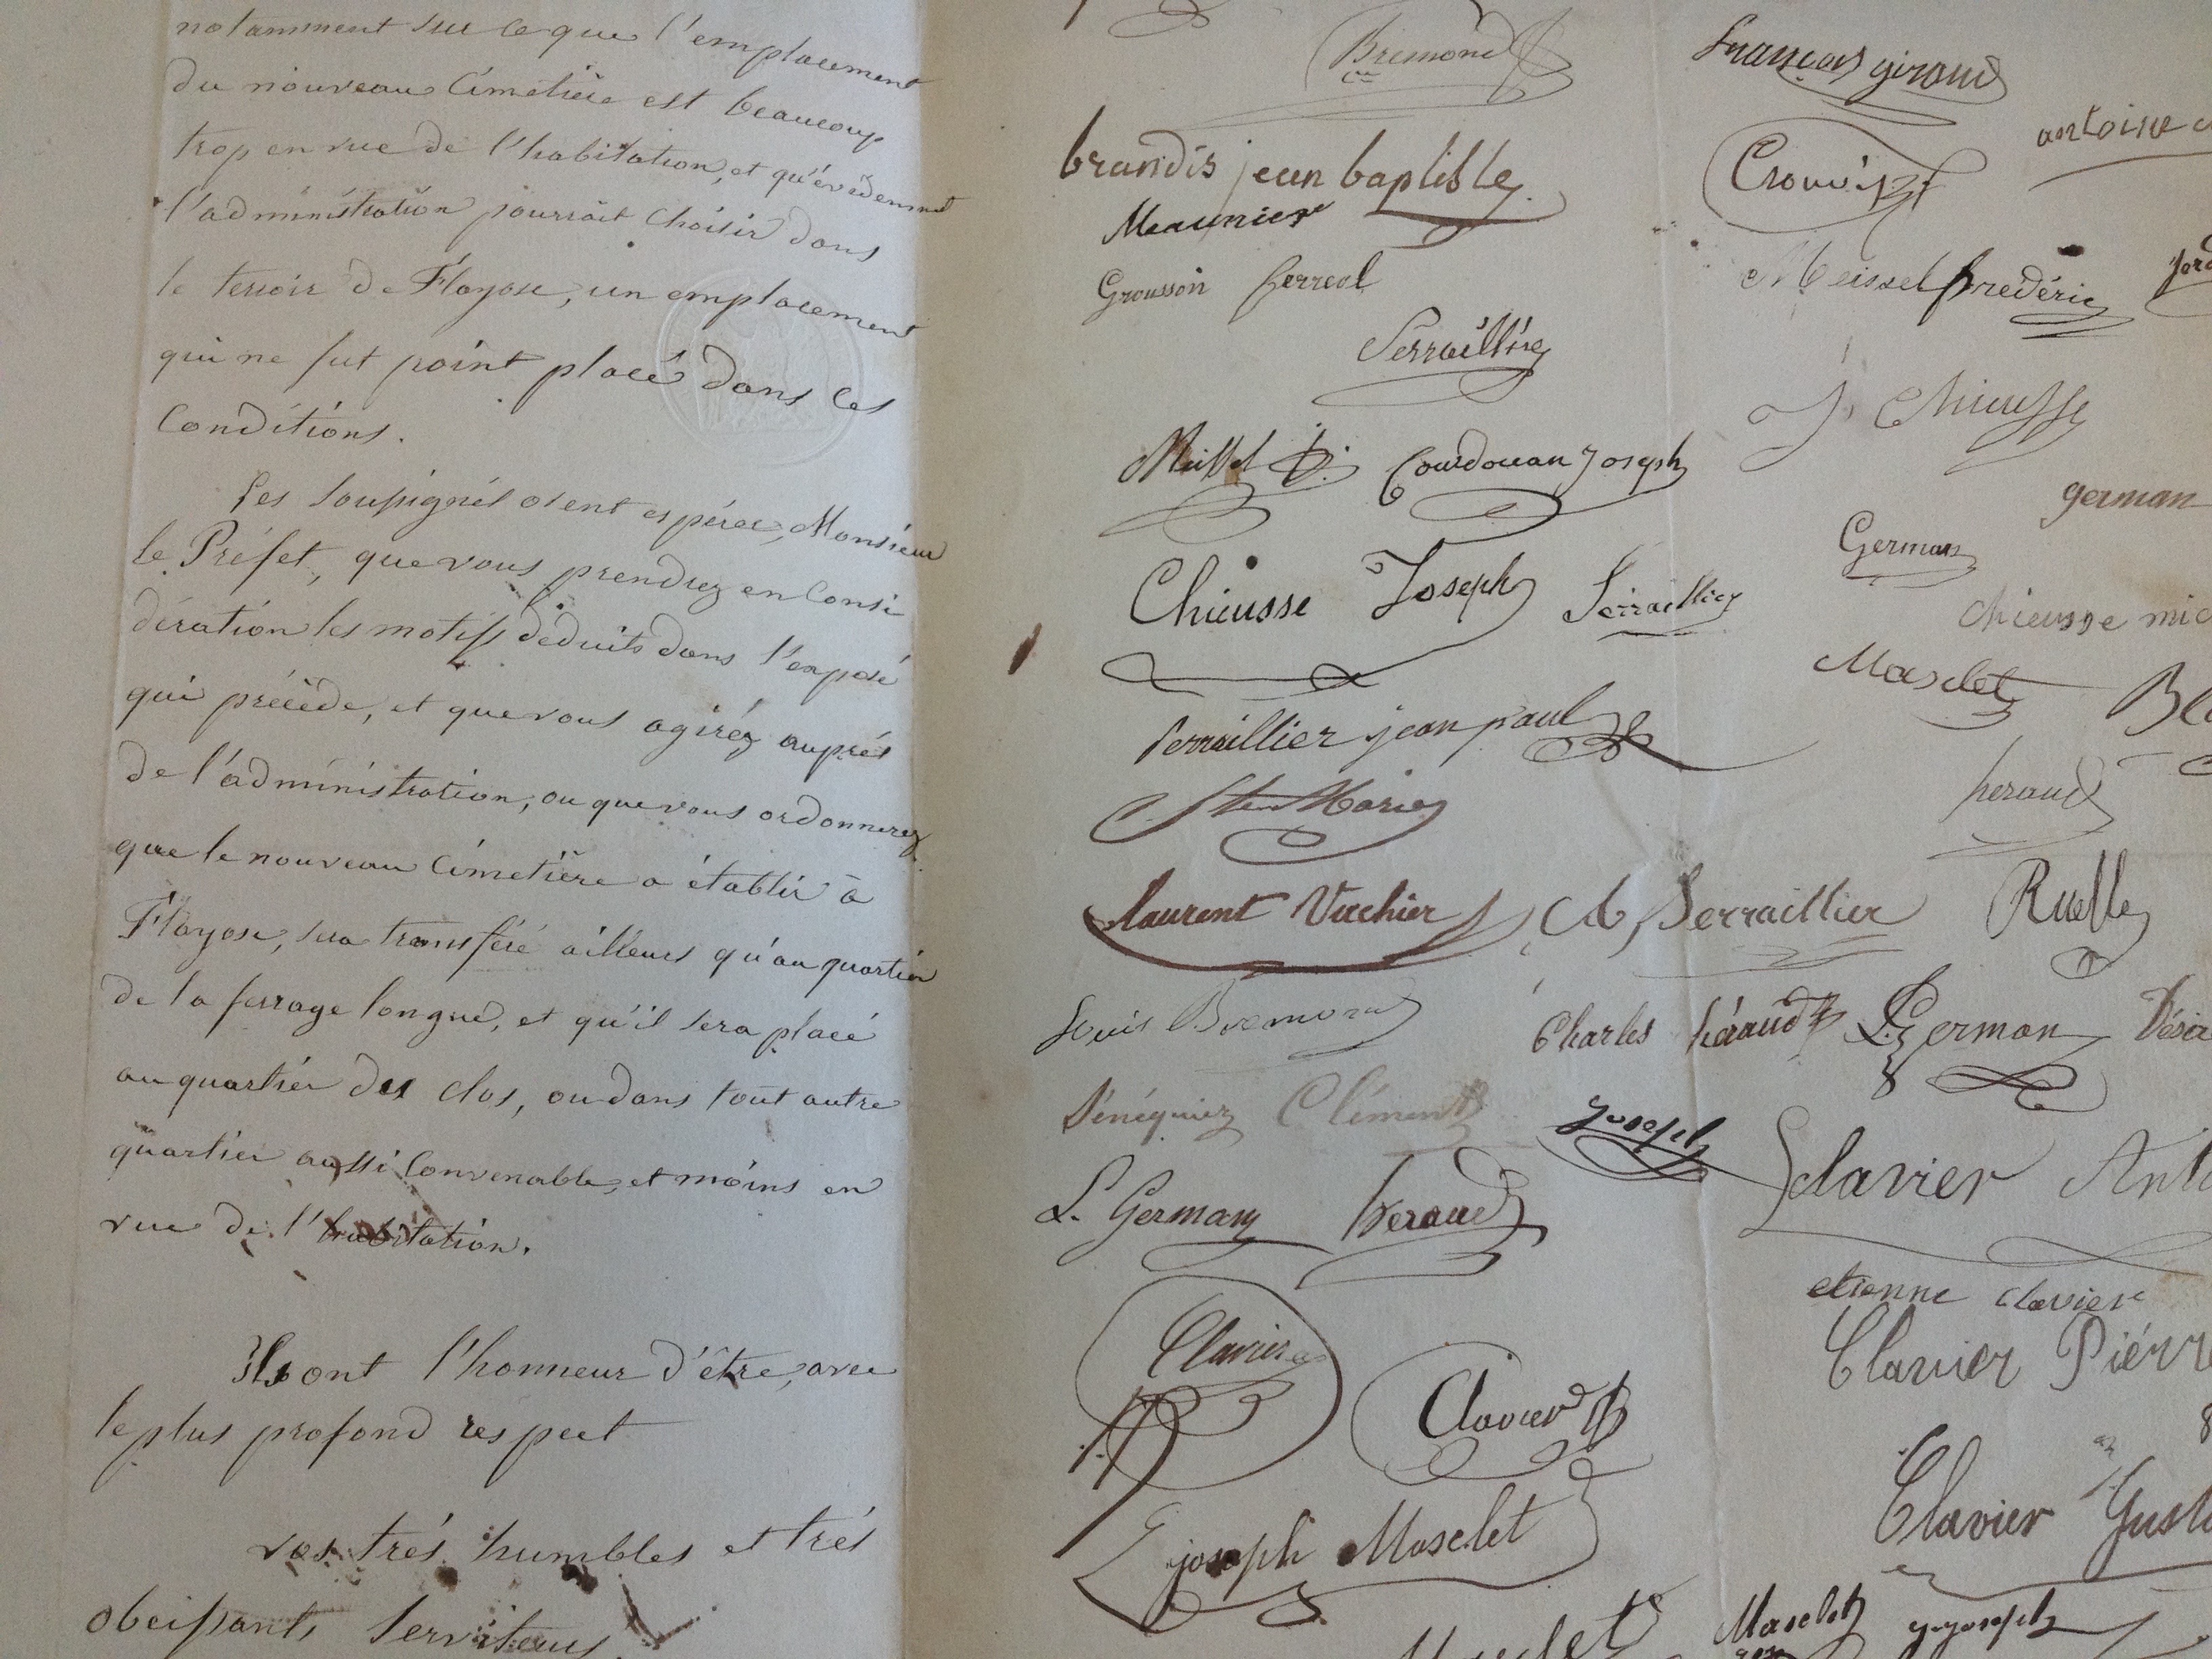 notamment sur ce que l'emplacement
du nouveau Cimetière est beaucoup
trop en vue de l'habitation, et qu'évidemmt
l'administration pourrait Choisir dans
le terroir de Flayosc, un emplacement
qui ne fut point placé dans ces
Conditions.
Les soussignés osent espérer, Monsieur
le Préfet, que vous prendrez en Consi
dération les motifs déduits dans l'exposé
qui précède, et que vous agirez auprès
de l'administration, ou que vous ordonnerez
que le nouveau Cimetière a établir à
Flayosc, sera transféré ailleurs qu'au quartier
de la ferrage longue, et qu'il sera placé
au quartier des clos, ou dans tout autre
quartier aussi Convenable, et moins en
vue de l'habitation.
Ils ont l'honneur d'être, avec
le plus profond respect
vos très humbles et très
obeissants Serviteurs
Brémond
brandis jean baptiste
Meaunier
Grousson ferreol
Serraillier
Courdouan Joseph
Chieusse Joseph Serraillier
Serraillier jean paul
Marie
laurent Vachier A, Serraillier
Louis Bremond Charles héraud
Sénéquier Clément Joseph
L. Germain heraud
Clavier
Clavier
joseph Masclet
françois giraud
antoine
Meissel frédéric
J. Chieusse
german
German
chieusse mic
Masclet
heraud
Ruelle
German Désir
Clavier Ant
etienne clavier
Clavier Piérre
Clavier Gust
Masclet
Masclet joseph